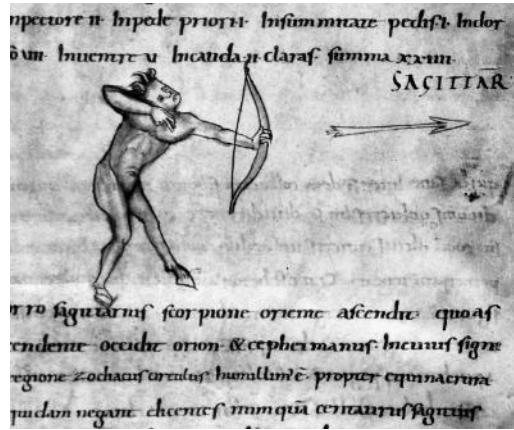 npectore ii· Inpede priori·i· Insummitate pedis·i· Indor
Inuentre u Incauda·ii·claras· summa xxiiii·
SAGITTAR̄
rro sagittarius scorpione oriente ascendit· quo as
endente occidit orion· & cephei manus· Incuius signi
egione zodiacus circulus humillim' ē· propter equina crura
quidam negant dicentes numquā centaurus sagittis